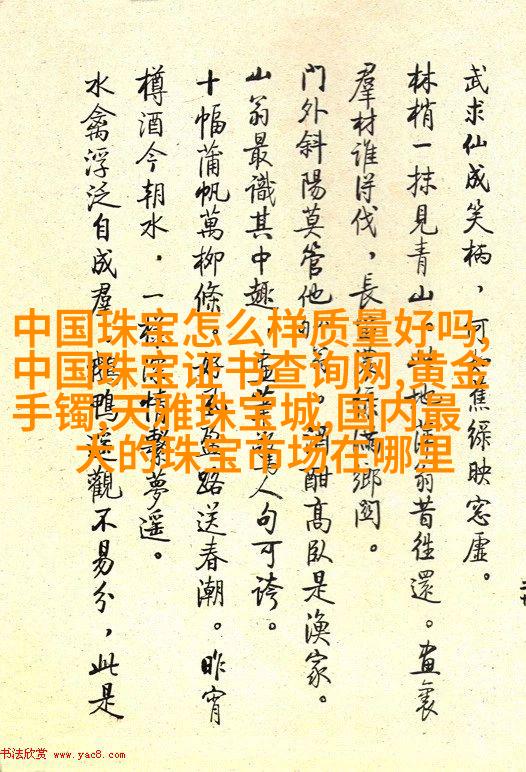 中国珠宝怎么样质量好吗,
中国珠宝证书查询网,黄金
手镯,天雅珠宝城,国内最
大的珠宝市场在哪里
武求仙成笑柄，蕉綠映窓虛。
林梢一抹見青山。此地翁昔往還。畫裏
羣材誰得伐，長滿鄉関。
門外斜陽莫管他酣高臥是漁家。
山翁最識其中趣，畫人句可誇。
十幅蒲帆萬柳條。好盈路送春潮。昨宵
樽酒今朝水，一樣深情繫夢遥。
水禽浮泛自成羣，鴨遥觀不易分，此是
书法欣赏 www.yac8.com